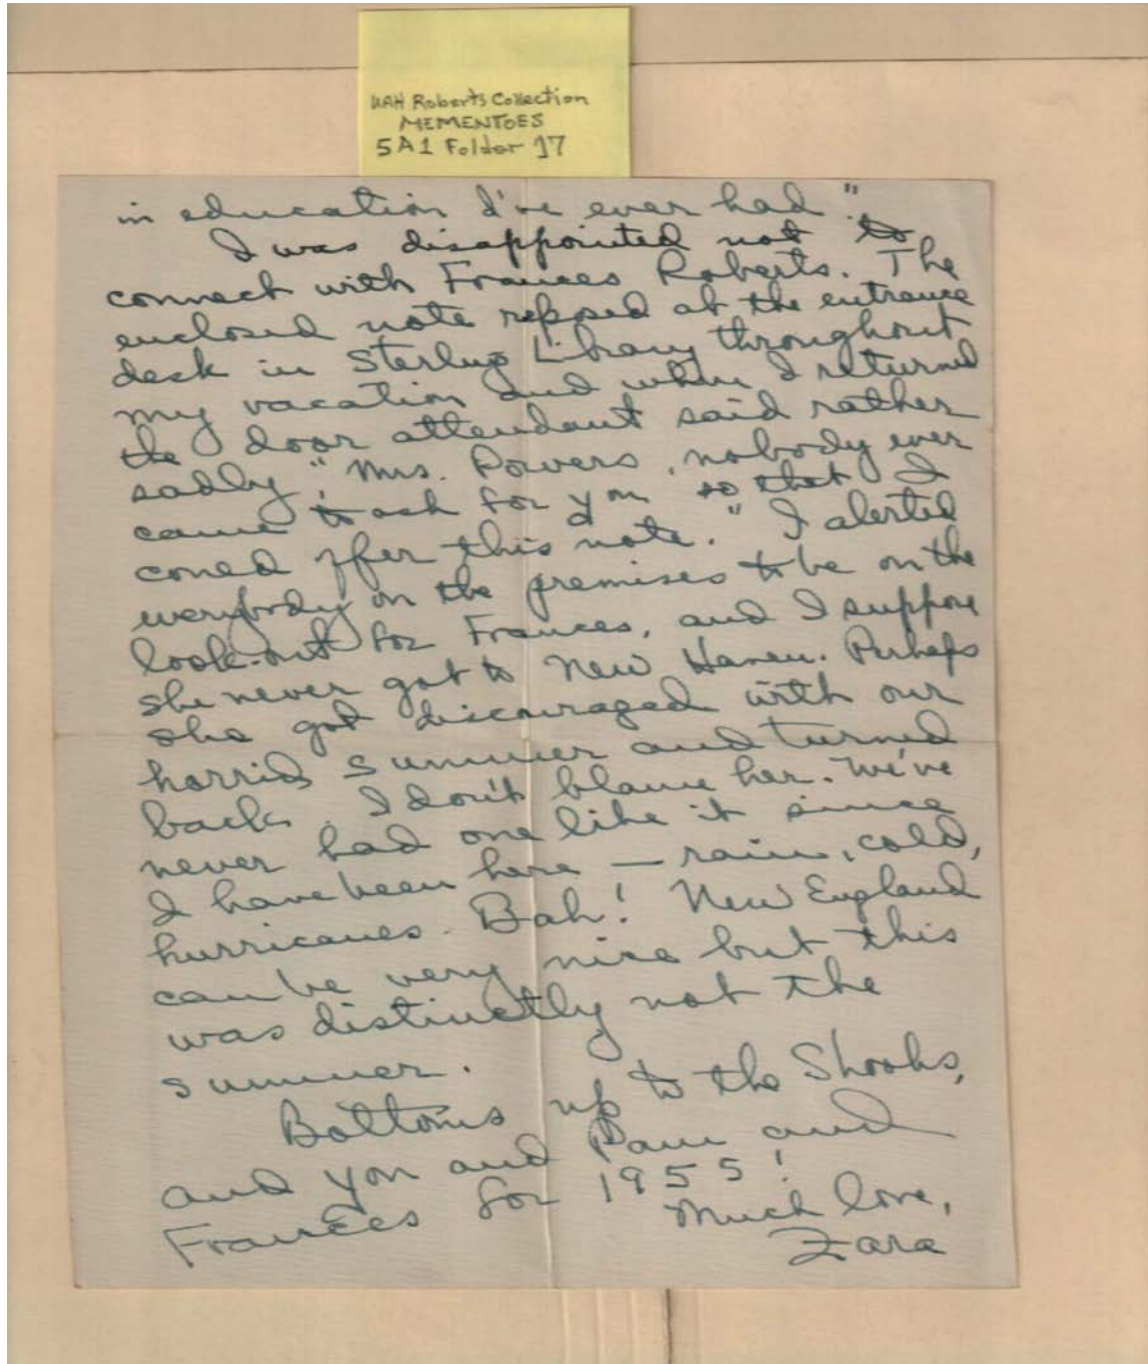 UAH Roberts Collection
MEMENTOES
5A1 Folder 17
in education I've ever had."
I was disappointed not to
connect with Frances Roberts. The
enclosed note reposed at the entrance
desk in Sterling Library throughout
my vacation and when I returned
the door attendant said rather
sadly "Mrs. Powers, nobody ever
came to ask for you so that I
could offer this note." I alerted
everybody on the premises to be on the
look-out for Frances, and I suppose
she never got to New Haven. Perhaps
she got discouraged with our
horrid summer and turned
back. I don't blame her. We've
never had one like it since
I have been here — rain, cold,
hurricanes. Bah! New England
can be very nice but this
was distinctly not the
summer.
Bottoms up to the Shooks,
and you and Pam and
Frances for 1955!
Much love,
Zara